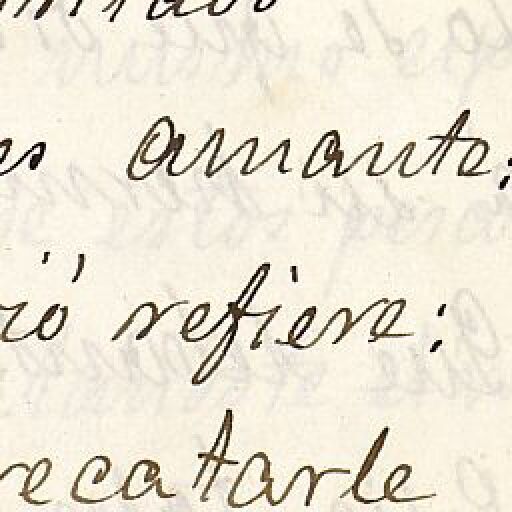 es amante;
ió refiere;
recatarle